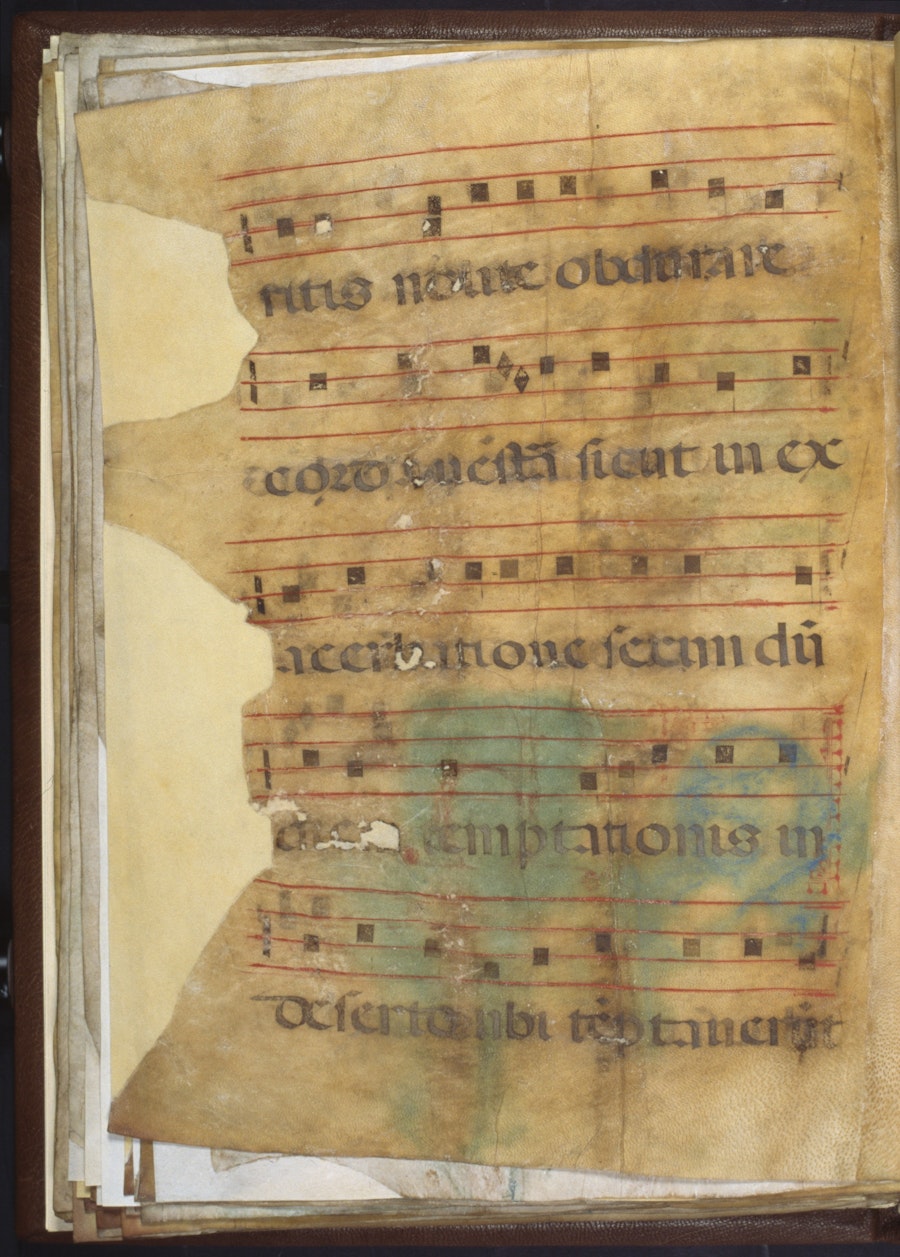 ritis nolite obdurare
corda vuestrã sicut in ex
acerbatione secun dũ
diem temptationis in
deserto ubi tẽptauerũt